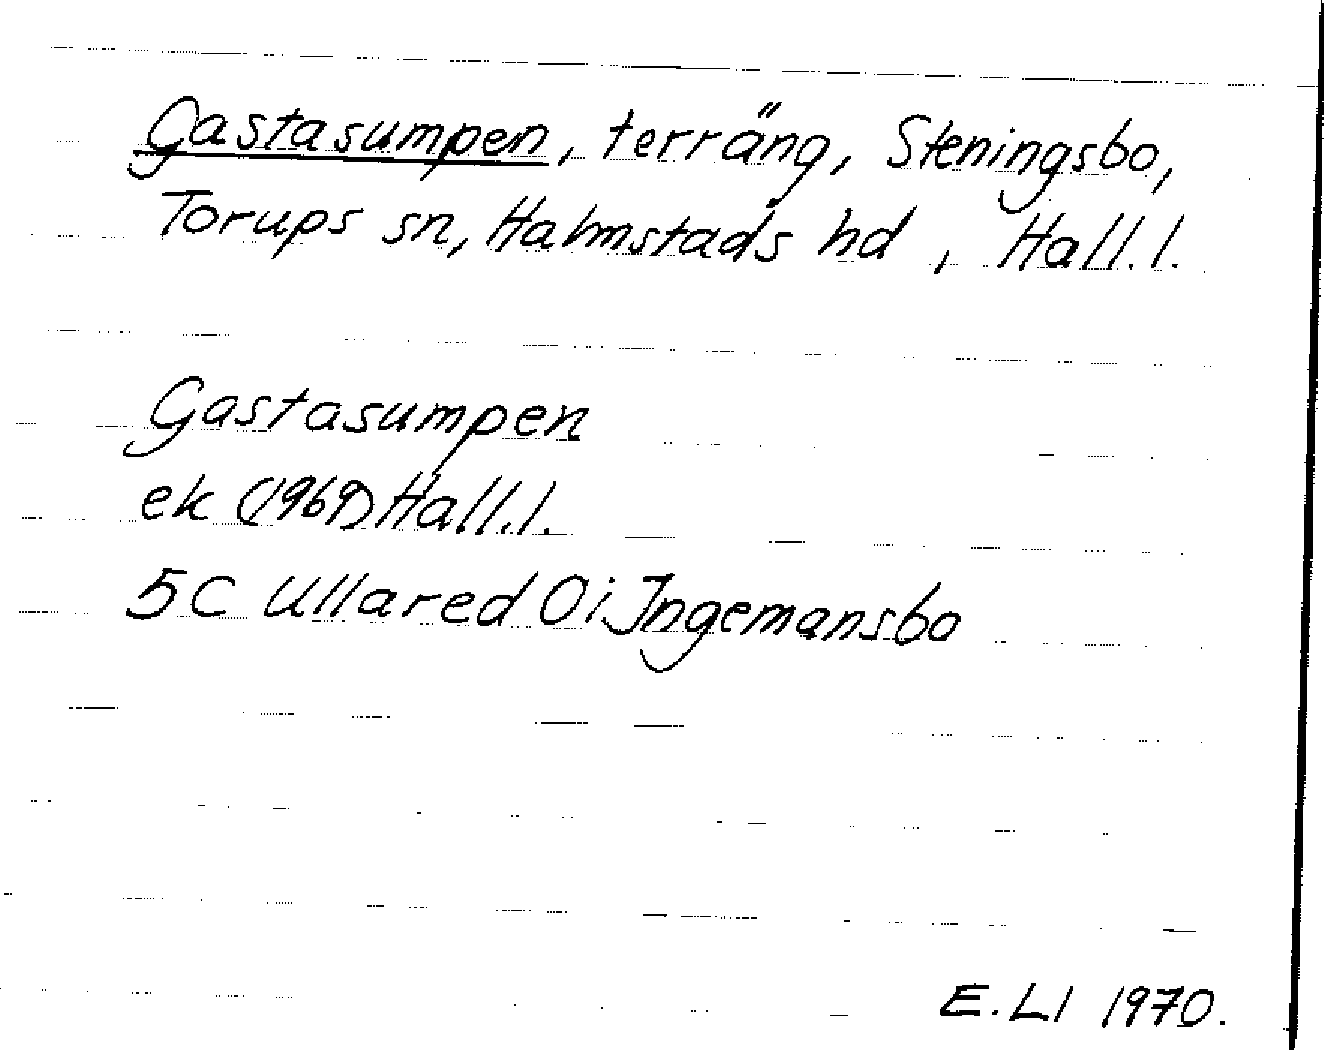 Gastasumpen, terräng, Steningsbo,
Torups sn, Halmstads hd, Hall.l.
Gastasumpen
ek (1969) Hall.l.
5C Ullared 0i Ingemansbo
E.Ll 1970.